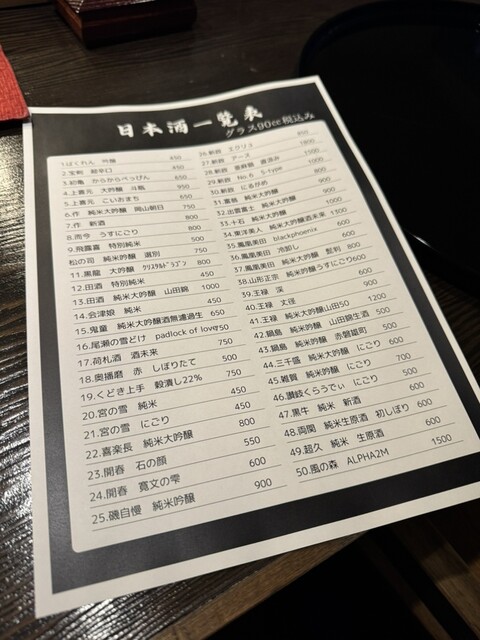 日本酒一覧表
グラス90cc税込み
1.ばくれん 吟醸 450
2.宝剣 超辛口 450
3.初亀 からからべっぴん 650
4.上喜元 大吟醸 斗瓶 950
5.上喜元 こいおまち 650
6.作 純米大吟醸 岡山朝日 750
7.作 新酒 800
8.而今 うすにごり 800
9.飛露喜 特別純米 500
松の司 純米吟醸 選別 750
11.黒龍 大吟醸 クリスタルドラゴン 800
12.田酒 特別純米 450
13.田酒 純米大吟醸 山田錦 1000
14.会津娘 純米 450
15.鬼童 純米大吟醸酒無濾過生 650
16.尾瀬の雪どけ padlock of love 750
17.荷札酒 酒未来 750
18.奥播磨 赤 しぼりたて 500
19.くどき上手 穀潰し22% 750
20.宮の雪 純米 450
21.宮の雪 にごり 450
22.喜楽長 純米大吟醸 800
23.開春 石の顔 550
24.開春 寛文の雫 600
25.磯自慢 純米吟醸 900
26.新政 エクリュ 850
27.新政 アース 1800
28.新政 亜麻猫 直汲み 1500
29.新政 No.6 S-type 1000
30.新政 にるがめ 900
31.富翁 純米大吟醸 900
32.出雲富士 純米大吟醸 900
33.十石 純米大吟醸 1000
34.東洋美人 純米大吟醸酒未来 1500
35.鳳凰美田 blackphoenix 600
36.鳳凰美田 冷卸し 600
37.鳳凰美田 純米大吟醸 髭判 800
38.山形正宗 純米吟醸うすにごり 600
39.王禄 渓 600
40.王禄 丈径 900
41.王禄 純米大吟醸山田50 1200
42.鍋島 純米吟醸 山田錦生酒 500
43.鍋島 純米吟醸 赤磐雄町 500
44.三千盛 純米大吟醸 にごり 600
45.雑賀 純米吟醸 にごり 700
46.讃岐くらうでぃ にごり 500
47.黒牛 純米 新酒 600
48.両関 純米生原酒 初しぼり 600
49.超久 純米 生原酒 600
50.風の森 ALPHA2M 1500